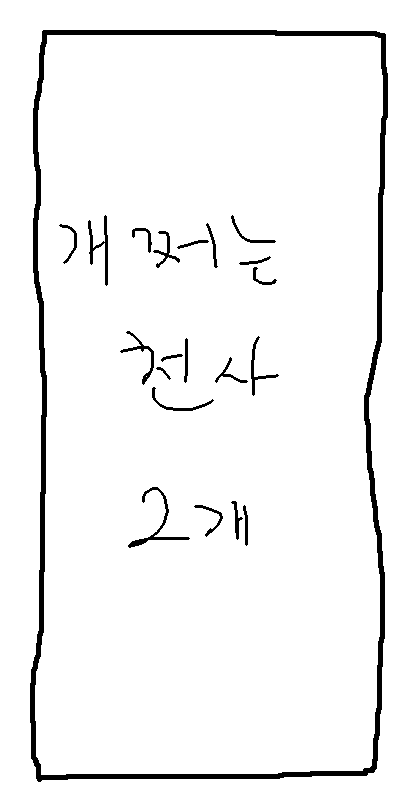 개쩌는
천사
2개